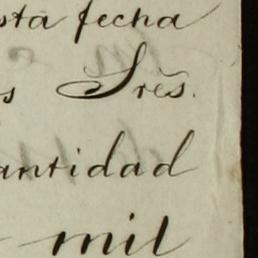 sta fecha
s Sres.
antidad
mil